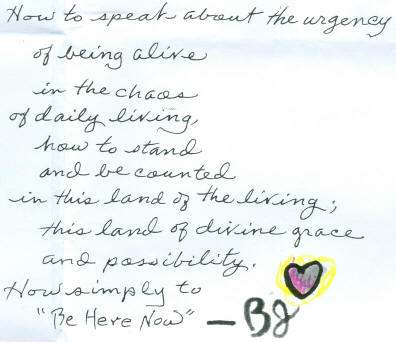 How to speak about the urgency
of being alive
in the chaos
of daily living,
how to stand
and be counted
in this land of the living;
this land of divine grace
and possibility.
How simply to
"Be Here Now" — BJ